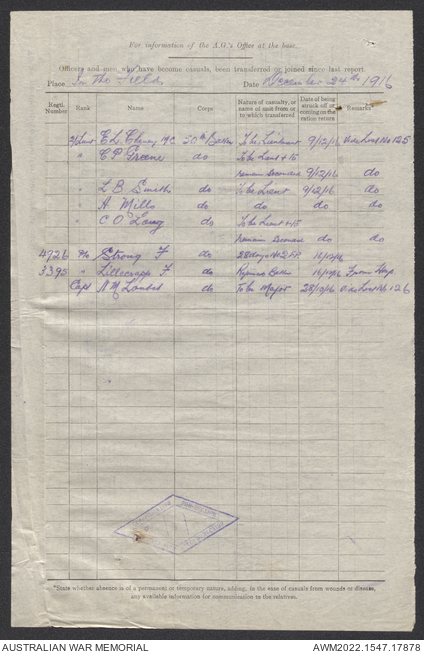 For information of the A.G.'s Office at the base.
Officers and men who have become casuals, been transferred or joined since last report
Place In the Field Date December 24th 1916
Regtl. Number Rank Name Corps Nature of casualty, or name of unit from or to which transferred Date of being struck off or coming on the ration return Remarks
2/Lieut E L MC 50th Battn To be Lieutenant 9/12/16 No 125
" C P Greene do To be Lieut & to
remain 9/12/16 do
" L B Smith do To be Lieut 9/12/16 do
" A Mills do do do do
" C O Long do To be Lieut & to
remain do do
4926 Pte Strong F. do 28 days No 2 F.P. 16/12/16
3395 " Lillecrapp F. do Rejoined Battn 16/12/16 From Hosp
Capt A M do To be Major 28/10/16 No 126
*State whether absence is of a permanent or temporary nature, adding, in the case of casuals from wounds or disease,
any available information for communication to the relatives.
AUSTRALIAN WAR MEMORIAL AWM2022.1547.17878